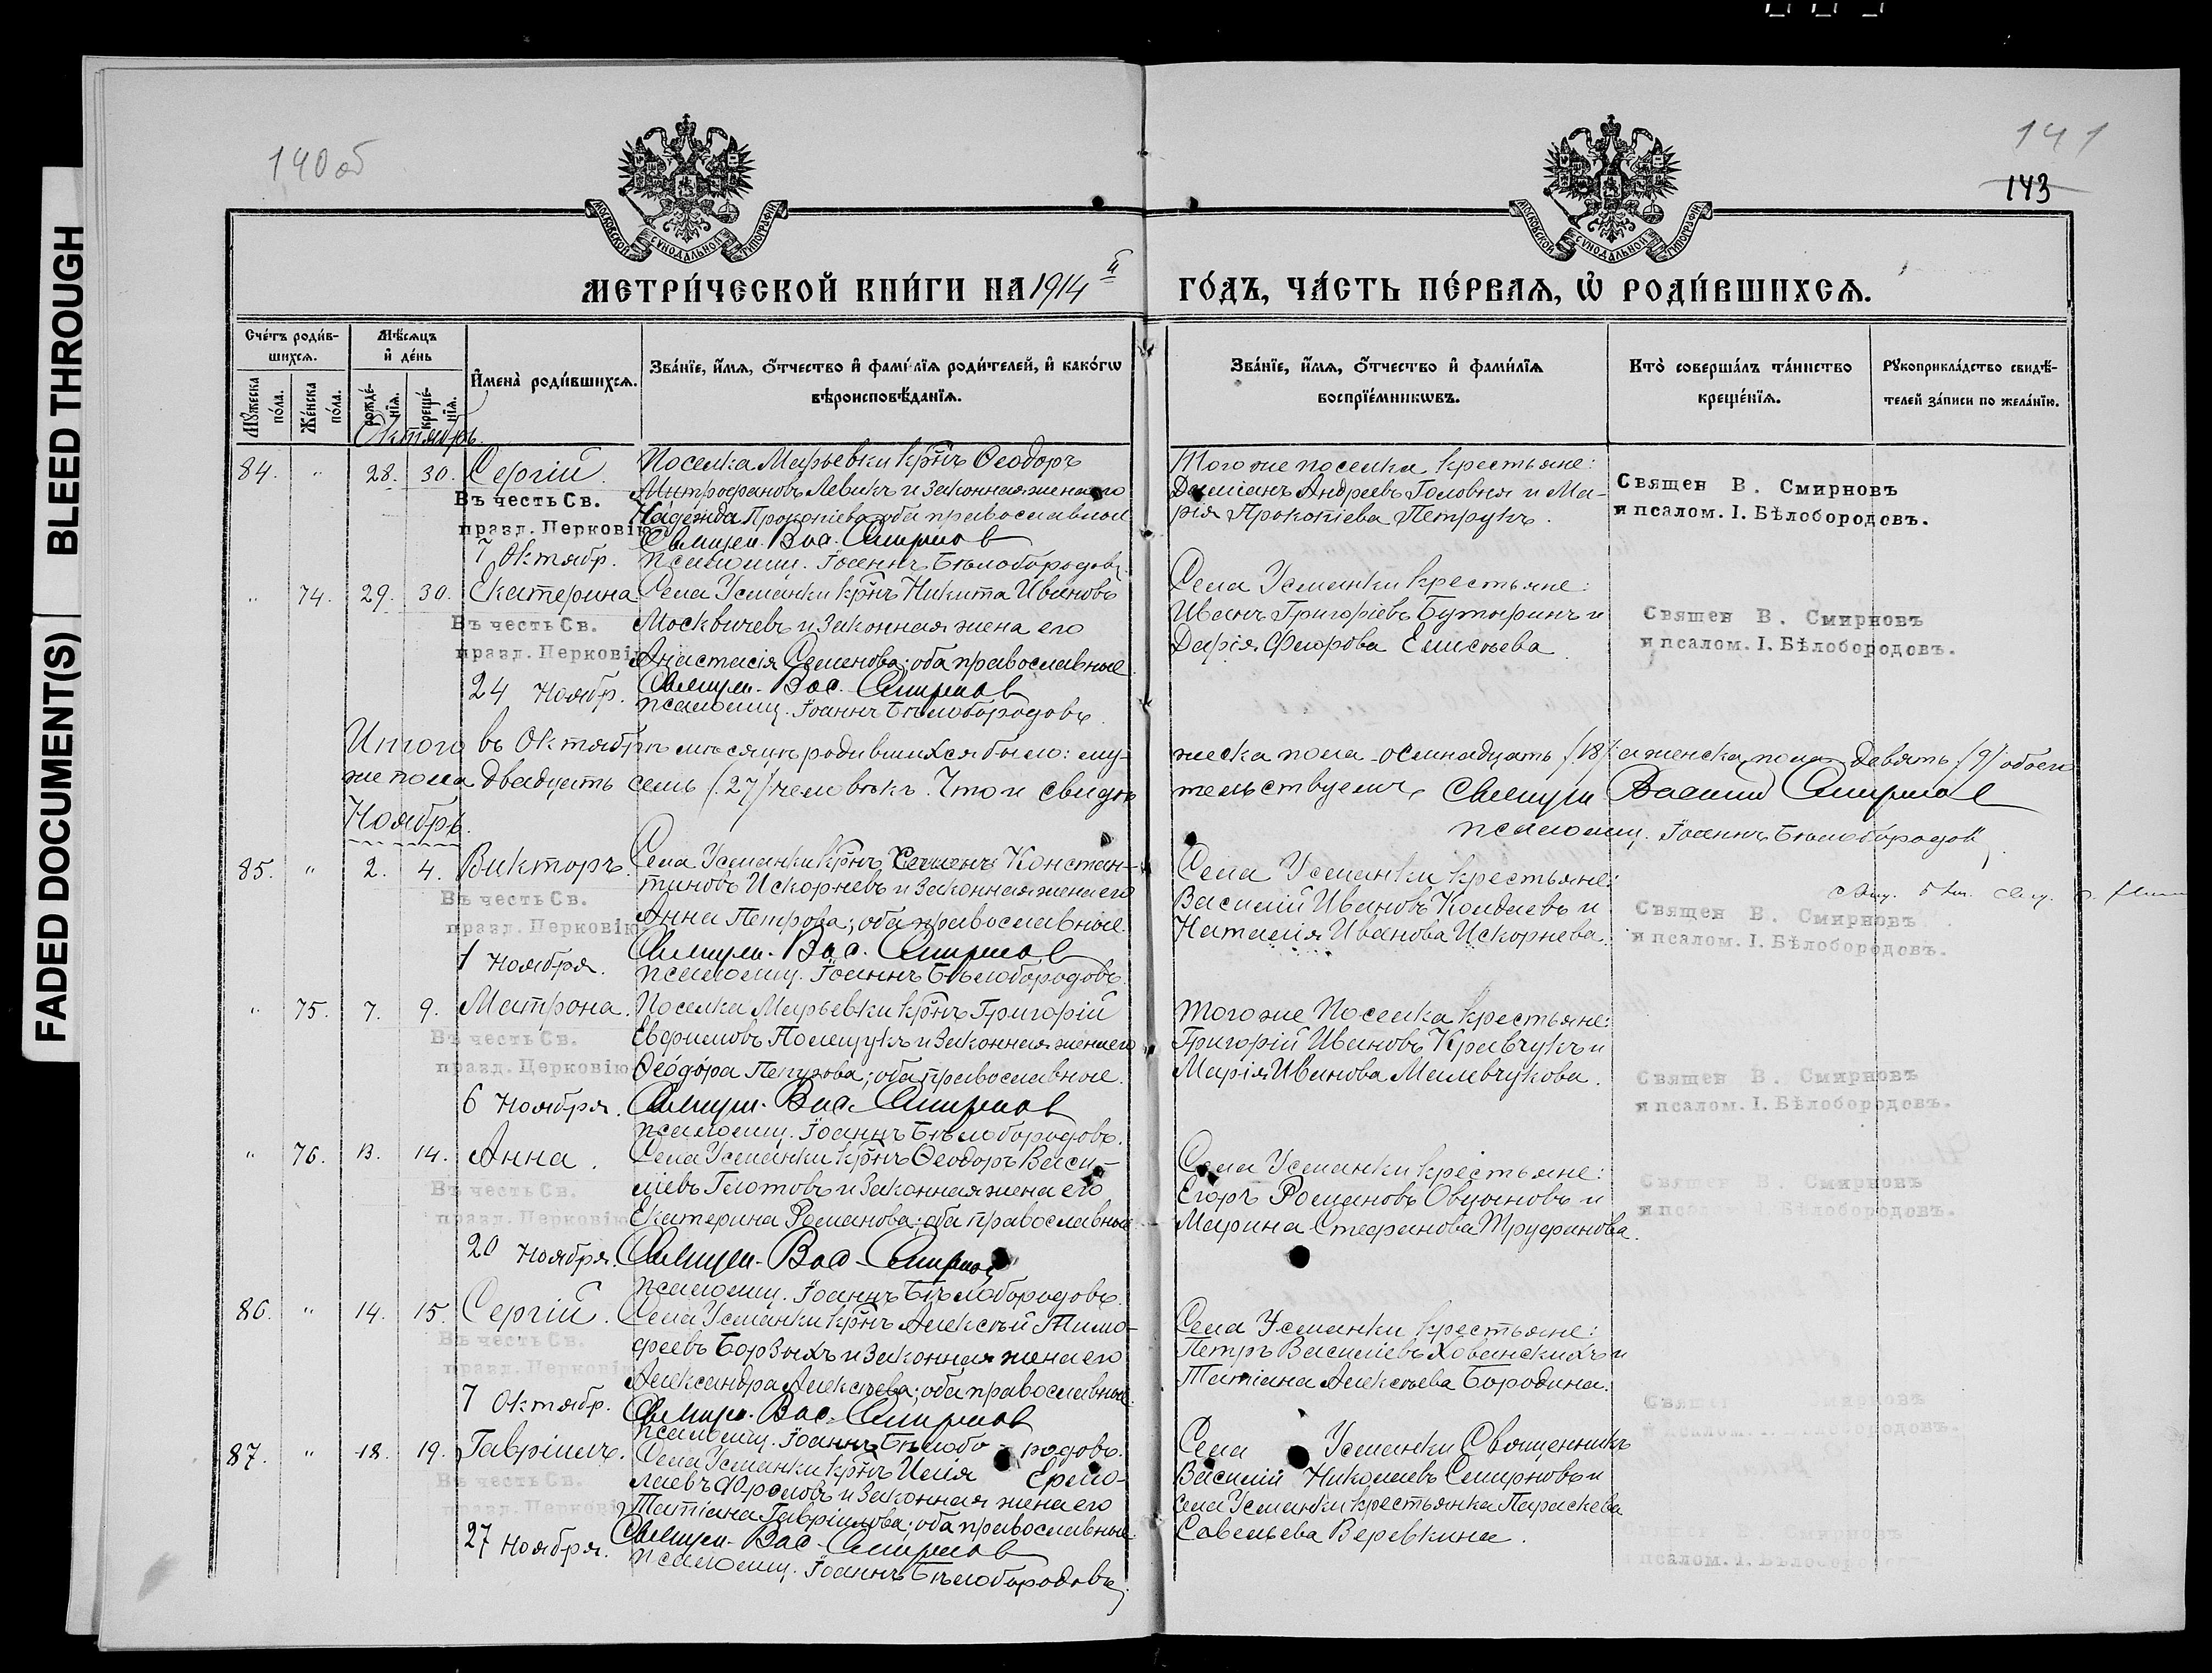 140 об
141
143
МЕТРИ́ЧЕСКОЙ КНИ́ГИ НА 1914й ГО́ДЪ, ЧА́СТЬ ПЕ́РВАЯ, Ѡ҆ РОДИ́ВШИХСЯ.
Сче́тъ роди́в-
шихся.
Мꙋ́жеска по́ла.
Же́нска по́ла.
Мѣ́сяцъ и҆ де́нь
рожде́-нїя.
креще́-нїя.
И҆мена̀ роди́вшихся.
Зва́нїе, и҆́мя, ѻ҆́тчество и҆ фами́лїя роди́телей, и҆ како́гѡ
вѣроисповѣ́данїя.
Зва́нїе, и҆́мя, ѻ҆́тчество и҆ фами́лїя
воспрїе́мникѡвъ.
Кто̀ соверша́лъ та́инство
креще́нїя.
Рꙋкоприкла́дство свидѣ́-
телей за́писи по жела́нїю.
Октябрь.
84. " 28. 30. Сергій.
Въ честь Св.
празд. Церковію
7 Октябр.
Поселка Марьевки крнъ Ѳеодоръ
Митрофановъ Левикъ и законная жена его
Надежда Прокопіева, оба православныя
Священ. Вас. Смирнов
псаломщ. Іоаннъ Бѣлобородовъ.
Того же поселка крестьяне:
Даміанъ Андреевъ Головня и Ма-
рія Прокопіева Петрукъ.
Священ В. Смирновъ
и псалом. І. Бѣлобородовъ.
" 74. 29. 30. Екатерина
Въ честь Св.
празд. Церковію
24 Ноябр.
Села Усманки крнъ Никита Ивановъ
Москвичевъ и законная жена его
Анастасія Семенова; оба православные.
Священ. Вас. Смирнов
псаломщ. Іоаннъ Бѣлобородовъ.
Села Усманки крестьяне:
Иванъ Григоріевъ Бутыринъ и
Дарія Флорова Елисѣева
Священ В. Смирновъ
и псалом. І. Бѣлобородовъ.
Итого въ Октябрѣ мѣсяцѣ родившихся было: му-
жеска пола осмнадцать /18/ а женска пола девять /9/ обоего
же пола двадцать семь /27/ человѣкъ. Что и свидѣ-
тельствуемъ Священ Василий Смирнов
псаломщ. Іоаннъ Бѣлобородовъ.
Ноябрь.
85. " 2. 4. Викторъ.
Въ честь Св.
празд. Церковію
1 Ноября.
Села Усманки крнъ Семенъ Констан-
тиновъ Искорневъ и законная жена его
Анна Петрова; оба православные.
Священ. Вас. Смирнов
псаломщ. Іоаннъ Бѣлобородовъ.
Села Усманки крестьяне:
Василій Ивановъ Колдаевъ и
Наталія Иванова Искорнева.
Священ В. Смирновъ
и псалом. І. Бѣлобородовъ.
" 75. 7. 9. Матрона.
Въ честь Св.
празд. Церковію
6 Ноября.
Поселка Марьевки крнъ Григорій
Евфимовъ Полещукъ и законная жена его
Ѳеодора Пегурова; оба православные.
Священ. Вас. Смирнов
псаломщ. Іоаннъ Бѣлобородовъ.
Того же Поселка крестьяне:
Григорій Ивановъ Кравчукъ и
Марія Иванова Малевчукова.
Священ В. Смирновъ
и псалом. І. Бѣлобородовъ.
" 76. 13. 14. Анна.
Въ честь Св.
празд. Церковію
20 Ноября.
Села Усманки крнъ Ѳеодоръ Васи-
ліевъ Глотовъ и законная жена его
Екатерина Романова; оба православные.
Священ. Вас. Смирнов
псаломщ. Іоаннъ Бѣлобородовъ.
Села Усманки крестьяне:
Егоръ Романовъ Овцыновъ и
Марина Стефанова Труфанова.
Священ В. Смирновъ
и псалом. І. Бѣлобородовъ.
86. " 14. 15. Сергій.
Въ честь Св.
празд. Церковію
7 Октябр.
Села Усманки крнъ Алексѣй Тимо-
феевъ Борзыхъ и законная жена его
Александра Алексѣева; оба православные.
Священ. Вас. Смирнов
псаломщ. Іоаннъ Бѣлобородовъ.
Села Усманки крестьяне:
Петръ Василіевъ Хованскихъ и
Татіана Алексѣева Бородина.
Священ Смирновъ
и псалом. Бѣлобородовъ.
87. " 18. 19. Гавріилъ.
Въ честь Св.
празд. Церковію
27 Ноября.
Села Усманки крнъ Илія Ермо-
лаевъ Фроловъ и законная жена его
Татіана Гавріилова; оба православные.
Священ. Вас. Смирнов
псаломщ. Іоаннъ Бѣлобородовъ.
Села Усманки Священникъ
Василій Николаевъ Смирновъ и
села Усманки крестьянка Параскева
Савельева Веревкина.
Смирновъ
псалом. І. Бѣлобородовъ
FADED DOCUMENT(S)
BLEED THROUGH